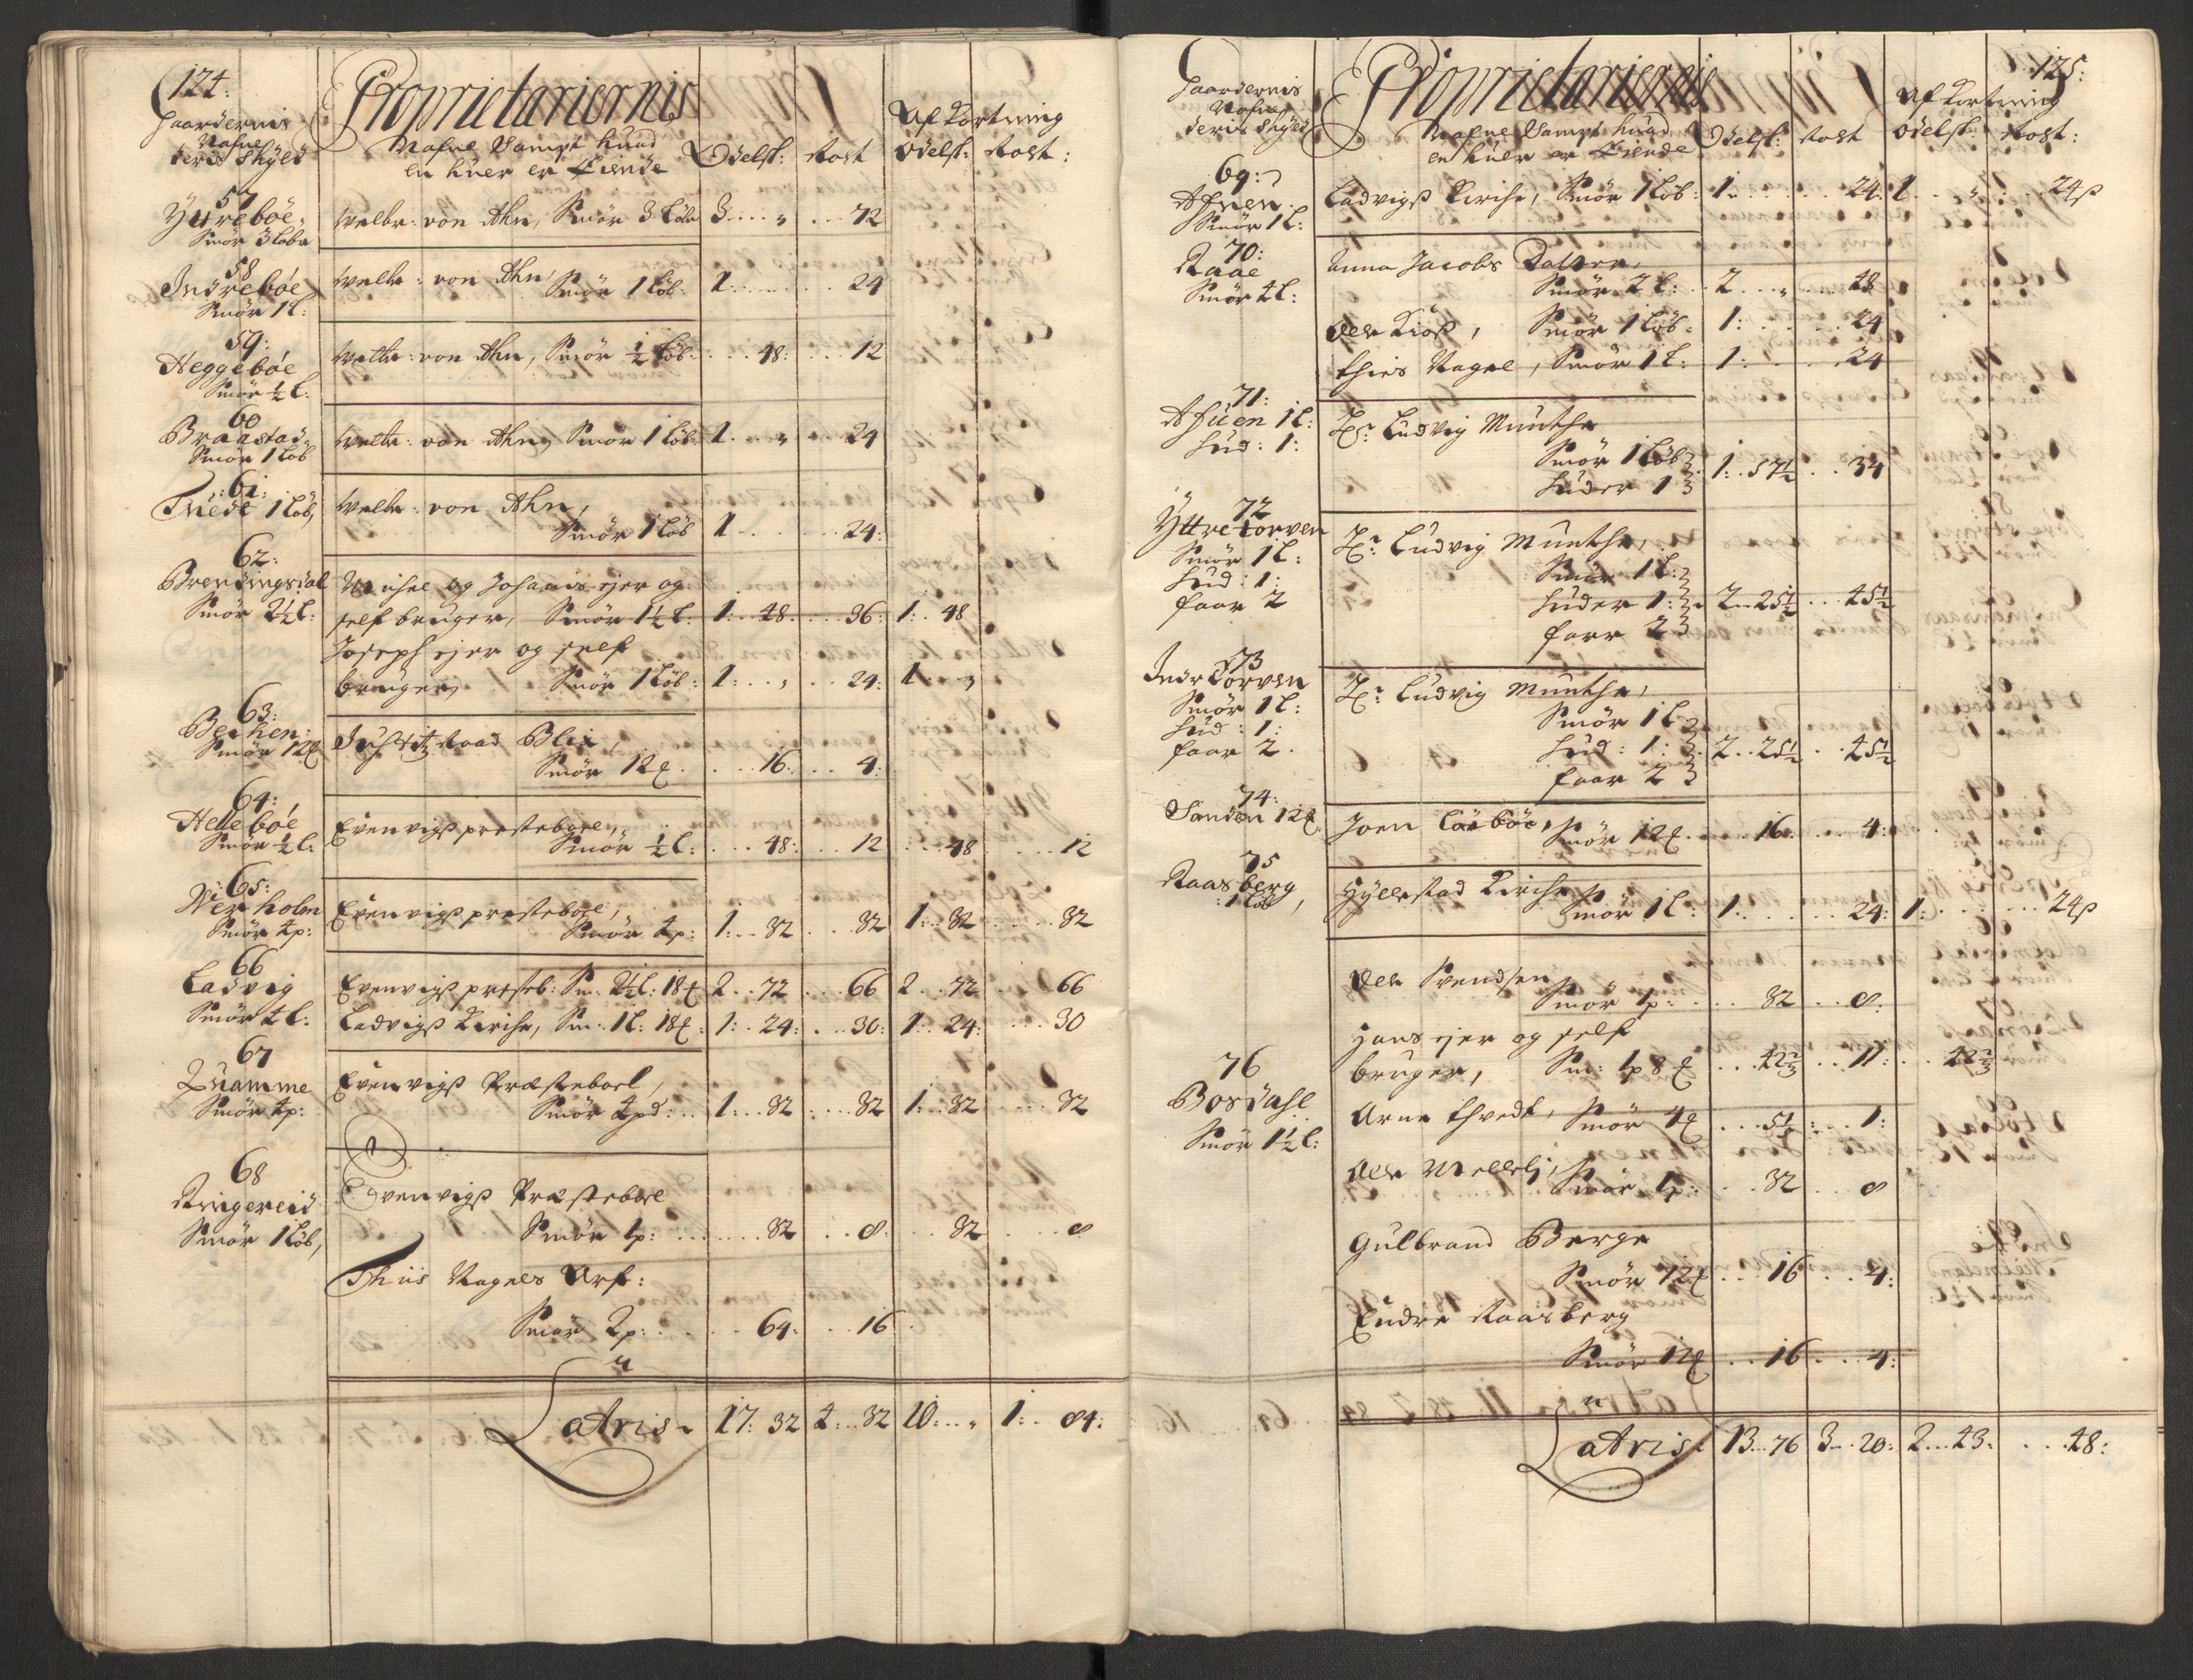 124.
Gaardernis
Nafne
deris Skyld
Proprietariernis
Nafne Sampt huad
en huer er Eiende
Odelsk: Rost
Afkortning
Odelsk: Rost:
57
Yttrebøe,
Smør 3 løbr
Welbr: von Ahn, Smør 3 Løbr 3 . . . „ . . . 72
58
Indrebøe
Smør 1 l:
Welbr: von Ahn, Smør 1 Løb: 1: . . . . 24
59:
Heggebøe
Smør ½ l:
Welbr: von Ahn, Smør ½ Løb. . . . 48: . . . 12
60
Braastad
Smør 1 Løb
Welbr: von Ahn, Smør 1 Løb 1. . . „ . . . 24
:61:
Tuedt 1 Løb,
Welbr: von Ahn,
Smør 1 Løb 1 . . . . 24:
62:
Brendingsdal
Smør 2½ l:
Michel og Johanis ejer og
self bruger, Smør 1½ l: 1: . 48. . . . 36: 1: . 48
Joseph ejer og self
bruger, Smør 1 Løb: 1: . . „ . . 24: 1: . . „
63:
Bechen:
Smør 12 ℔
Justitz Raad Blix,
Smør 12 ℔ . . . 16: . . . 4:
64:
Hellebøe
Smør ½ l:
Evenvigs presteboel,
Smør ½ l: . . . 48: . . 12 . . . 48 . . . 12
:65:
Werholm
Smør 4 p:
Evenvigs prestebol,
Smør 4 p: 1: . . 32 . . . 32 1: . . 32 . . . 32
66
Ladvig
Smør 4 l:
Evenvigs presteb: Sm. 2½ l: 18 ℔ 2 . . 72 . . . 66 2 . . 72 . . . 66
Ladvigs Kirche, Sm. 1 l: 18 ℔: 1: . 24: . . . 30: 1: . 24: . . . 30
67
Quamme
Smør 4 p:
Evenvigs Præsteboel,
Smør 4 pd: . . 1: . . 32 . . . 32 1: . . 32 . . . 32
68
Ringereid
Smør 1 Løb,
Evenvigs Præstebol
Smør 1 p: . . . . 32 . . 8: . . 32 . . . 8
Thiis Nagels Arf:
Smør 2 p: . . . 64: . . 16
Latris. 17: 32 4: . . 32 10: . . „ 1: . . 84:
125:
Gaardernis
Nafne
deris Skyld
Proprietariernis
Nafne Sampt huad
en huer er Eiende
Odelsk: Rost
Afkortning
Odelsk: Rost:
69:
Asnen.
Smør 1 l:
Ladvigs Kirche, Smør 1 Løb: 1: . . . . 24: 1 . . . „ . . . 24 s
70:
Raae
Smør 4 l:
Anna Jacobs Datter,
Smør 2 l: . . 2 . . . „ . . . 48
Ole Kiøs, Smør 1 Løb: 1: . . . . 24
Thies Nagel, Smør 1 l: 1: . . . . 24
71:
Afuen 1 l:
hud: 1:
Hr: Ludvig Munthe
Smør 1 Løb
huder 1 1: . . 57½ . . 34
72
Yttre torven
Smør 1 l:
hud: 1:
faar 2
Hr: Ludvig Munthe,
Smør 1 l:
huder 1: 2 . . 25½ . . . 45½
faar 2
73
Indr Torven
Smør 1 l:
hud: 1:
faar 2.
Hr: Ludvig Munthe,
Smør 1 l
hud: 1: 2 . . 25½ . . 45½
faar 2
74:
Sanden 12 ℔
Joen Løebøe, Smør 12 ℔. . . . 16: . . . 4:
75
Raasberg
1 Løb,
Hyllestad Kirche
Smør 1 l: 1: . . . . 24: 1: . . . . . 24 s
76
Bosdahl
Smør 1½ l:
Ole Svendsen
Smør 1 p: . . . 32 . . 8:
Hans ejer og self
bruger, Sm: 1 p 8 ℔ . . . 42⅔ . . 11: . . . 42⅔
Arne Thvedt, Smør 4 ℔ . . . 5⅓ . . . 1:
Ole Mellelj, Smør 1 p: . . 32 . . . 8
Gulbrand Berge
Smør 12 ℔ . . . 16 . . . 4:
Endre Raasberg
Smør 12 ℔ . . 16 . . . 4:
Latris. 13 . . 76 3 . . 20: 2 . . . 43: . . . 48: